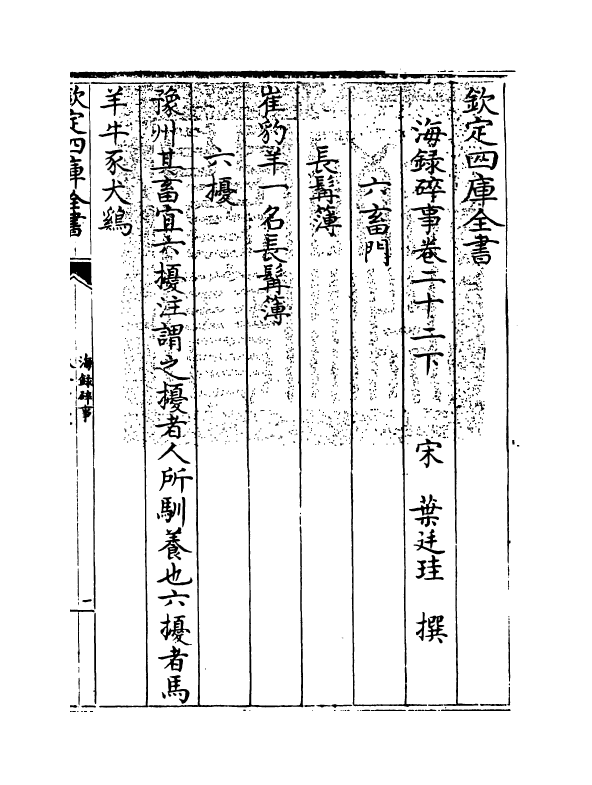 欽定四庫全書
海録碎事卷二十二下　宋　葉廷珪　撰
六畜門
長髯簿
崔豹羊一名長髯簿
六擾
豫州其畜宜六擾注謂之擾者人所馴養也六擾者馬
羊牛豕犬鷄
欽定四庫全書
海録碎事
一